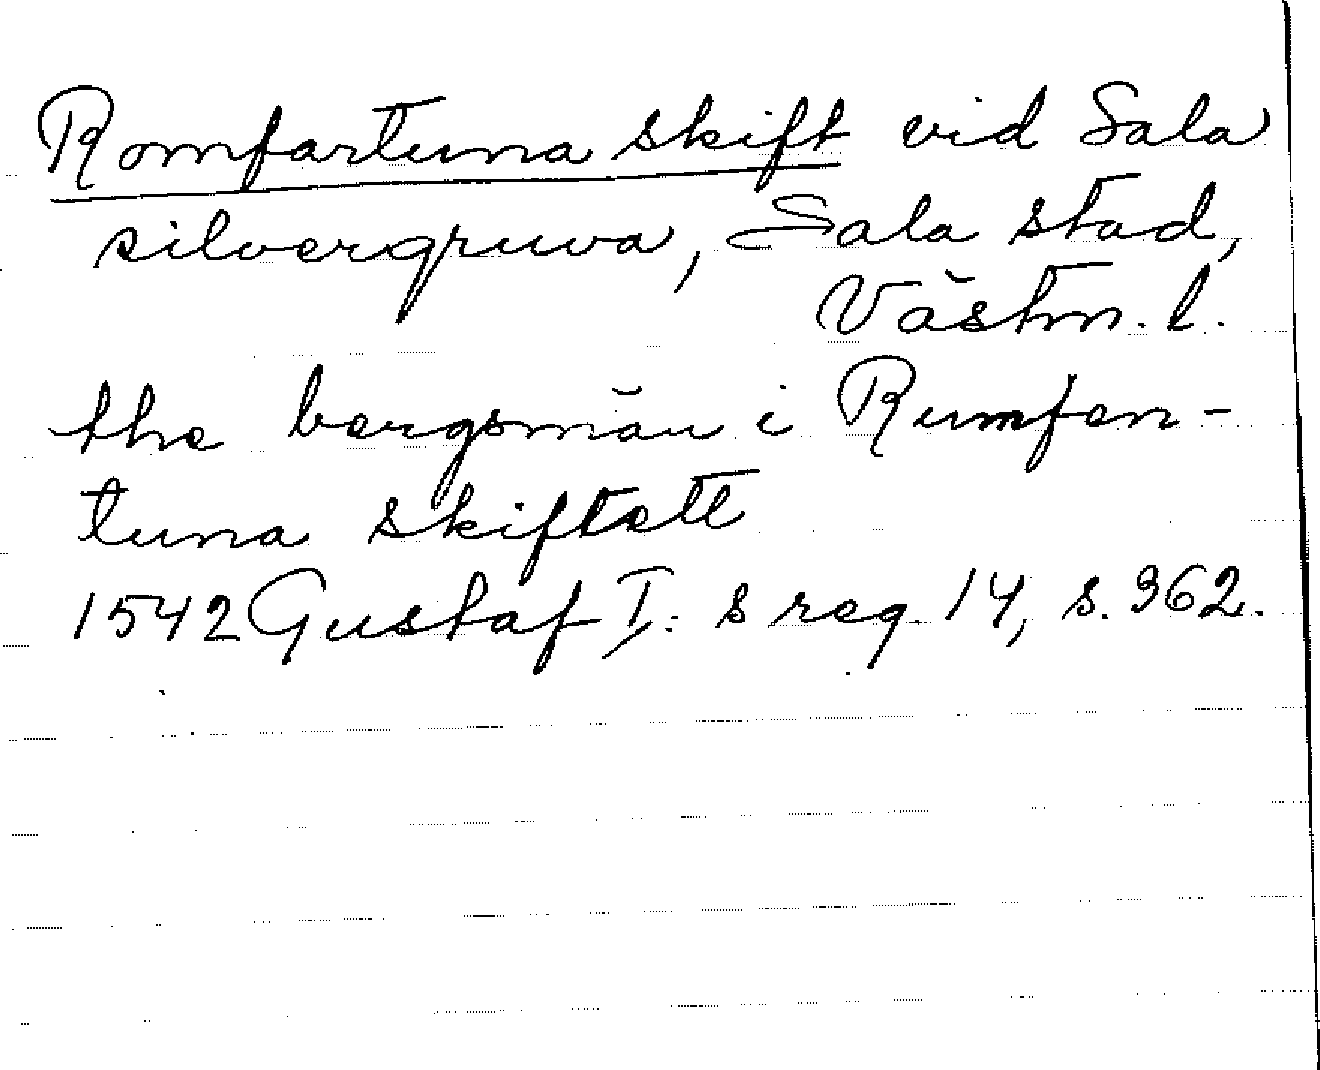 Romfartuna skift vid Sala
silvergruva, Sala stad,
Västm. l.
the bergsmän i Rumfen-
tuna skiftett
1542 Gustaf I:s reg. 14, s. 362.